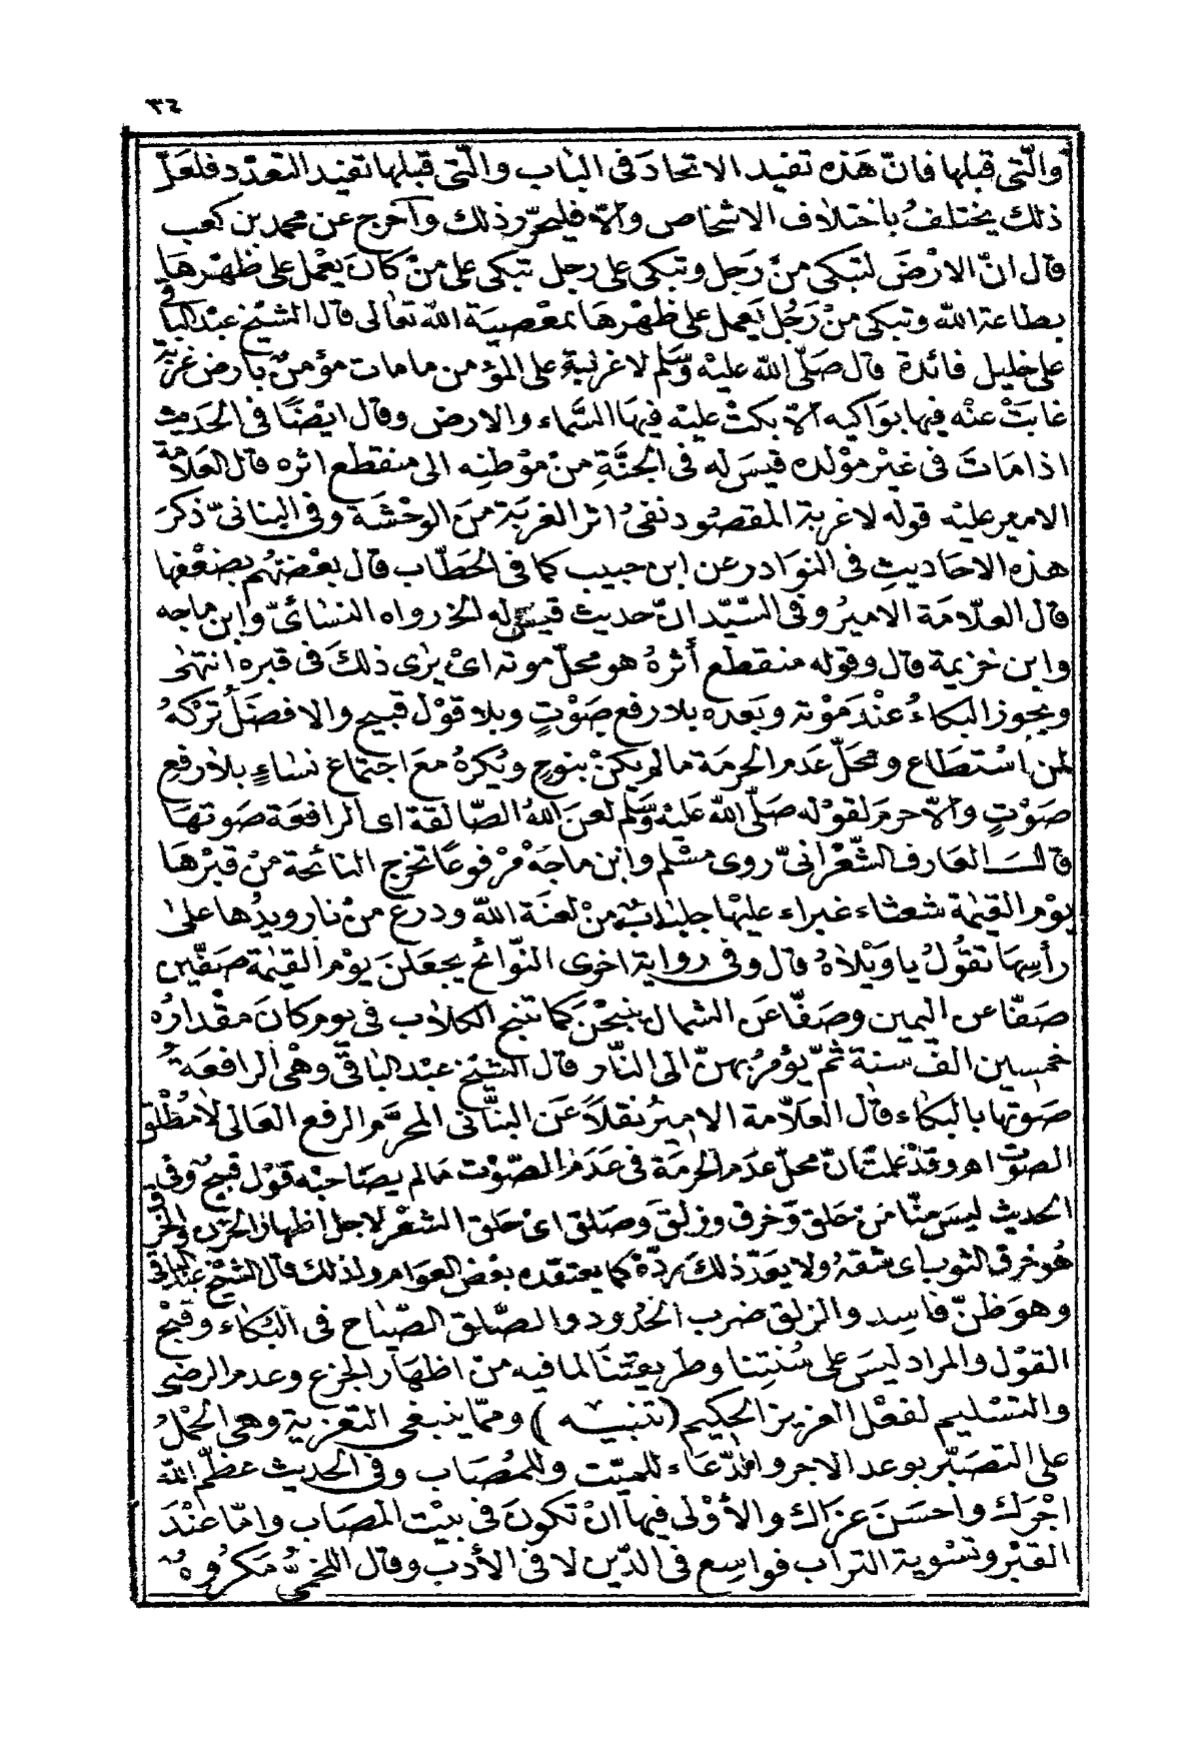 ٣٤
والّتى قبلها فانّ هَذه تفيد الاتحادَ فى الباب والّتى قبلها تفيد التعدّد فلعَلّ
ذلك يختلفُ باختلاف الاشخاص والّا فليحرّر ذلك وأخرج عن محمد بن كعب
قال انّ الارْضَ لتبكى منْ رَجل وتبكى على رجل تبكى على منْ كانَ يعْمل على ظهْرهَا
بطاعة الله وتبكى منْ رَجُل يَعمل على ظهْرهَا بمعْصية الله تعَالى قال الشيْخ عبْد الباقى
على خليل فائدة قال صَلّى الله عليْه وسَلّم لا غربةَ على المؤمن ما مات مؤمنٌ بارض غرْبة
غابَتْ عنْه فيها بوَاكيه الّا بكتْ عليْه فيهَا السَّماء والارض وقال ايْضًا فى الحَديث
اذا مَاتَ فى غيْر موْلده قيسَ له فى الجنَّةِ منْ موْطنِه الى منقطع اثره قال العَلّامة
الامير عليْه قوله لا غربة المقصُود نفىُ اثر الغربَة منَ الوحْشَة وفى البنانىّ ذكرَ
هذه الاحَاديثِ فى النوَادر عن ابن حبيب كما فى الحَطّاب قال بعْضهُم بضعْفها
قال العلّامَة الاميرُ وفى السّيّد انّ حديث قيسَ له الخ رواه النسَائىّ وابن ماجه
وابن خزيمة قال وقوله منقطع أثرهُ هو محلّ موته اىْ يرٰى ذلكَ فى قبره انتهٰى
ويجوز البكاءُ عنْدَ مَوْته وبَعده بلا رفع صَوْتٍ وبلا قوْل قبيح والافضَلُ ترْكهُ
لمن اسْتطَاع ومحَلّ عَدم الحرمَة ما لم يكنْ بنوحٍ ويُكرهُ معَ اجتماع نساءٍ بلا رفع
صَوْتٍ والّا حرمَ لقوْله صَلّى الله عَليْه وسَلّم لعنَ اللهُ الصّالقة اى الرافعَة صَوتهَا
قالــ العَارف الشّعْرانىّ روى مسْلم وابْن ماجَهْ مرْفوعًا تخرج النائحة منْ قبرْهَا
يوْم القيٰمة شعثاء غبراء عليْها جلبابٌ منْ لعنَة الله ودرع منْ نار ويدُها علىٰ
رأسِهَا تقُولُ يا ويْلاهُ قال وفى رواية اخرى النّوائح يجعَلنَ يوْم القيٰمة صَفّين
صَفّا عن اليمين وصَفّا عَن الشمال ينبحْنَ كما تنبح الكلاب فى يوم كانَ مقْدارُه
خمسين الفَ سنة ثمّ يؤْمرُ بهنّ الى النّار قال الشيْخ عبْد الباقى وهْى الرافعَةُ
صَوتها بالبكاء قال العَلّامة الاميْر نقلاً عَن البنّانى المحرّم الرفع العَالى لا مُطْلق
الصوْت اهـ وقدْ علمتَ انّ محلّ عدم الحرمَة فى عَدَم الصّوْت مَا لم يصَاحبْه قوْل قبيحٌ وفى
الحَديث ليسَ منّا منْ حَلق وَخرق وزلقَ وصَلق اىْ حَلق الشعْر لاجل اظهار الحزن والخرق
هُو خرق الثوب اى شقهُ ولا يعَدّ ذلكَ ردّةً كما يعتقده بعْض العوَام ولذلك قال الشيْخ عبْد الباقى
وهوَ ظنّ فاسِد والزلق ضرب الخدُود والصّلق الصّياح فى البُكاء وقبْح
القوْل والمراد ليسَ على سُنتِنا وطريقتنَا لما فيه من اظهَار الجزع وعدم الرضى
والتسْليم لفعْل العزيز الحكيم (تنبيــه) وممّا ينبغى التعْزية وهى الحمْلُ
على التصَبّر بوعد الاجر والدّعَاء للميّت وللمُصَاب وفى الحَديث عظّم الله
اجْرَك واحسَنَ عزاك والأوْلى فيها انْ تكونَ فى بيْت المصَاب وامّا عنْدَ
القبْر وتسْوية التراب فواسِع فى الدّين لا فى الأدب وقال اللخمىُّ مَكرُوهٌ